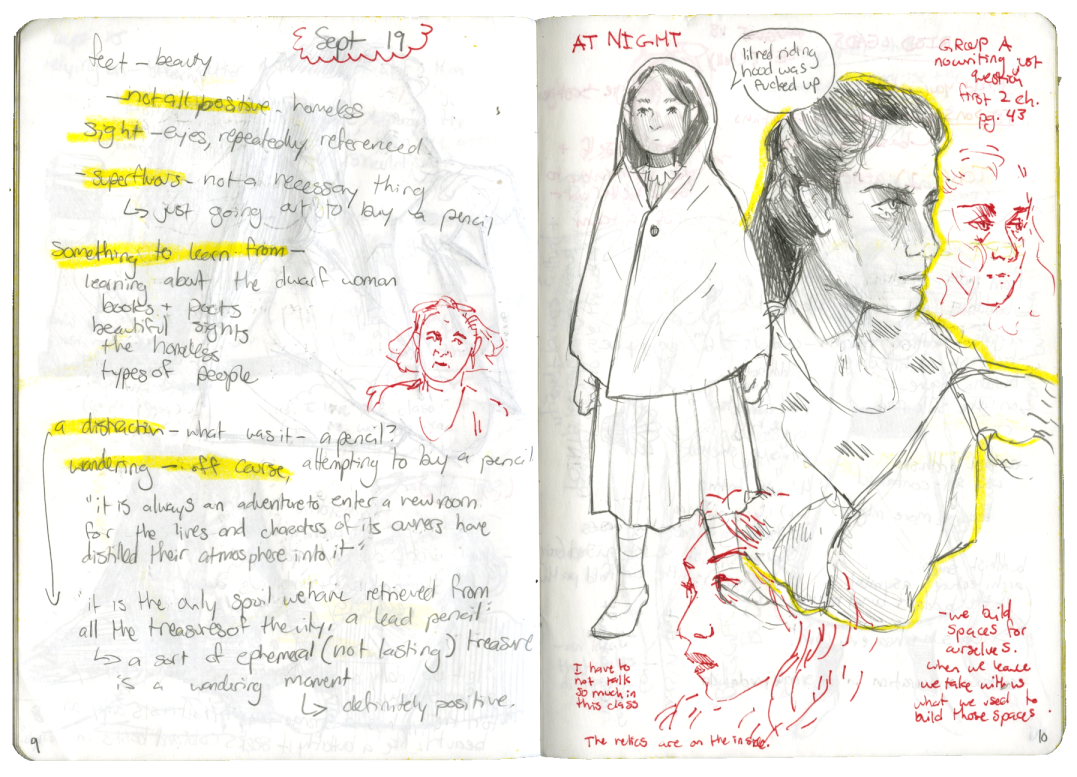 Sept 19
feet - beauty
- not all positive - homeless
sight - eyes, repeatedly referenced.
- superfluous - not a necessary thing
↳ just going out to buy a pencil
something to learn from -
learning about the dwarf woman
books + poets
beautiful sights
the homeless
types of people
a distraction - what was it - a pencil?
wandering - off course, attempting to buy a pencil
"it is always an adventure to enter a new room
for the lives and characters of its owners have
distilled their atmosphere into it"
"it is the only spoil we have retrieved from
all the treasures of the city, a lead pencil"
↳ a sort of ephemeral (not lasting) treasure
is a wandering moment
↳ definitely positive.
9
AT NIGHT
lil red riding
hood was
fucked up
GROUP A
no writing just
question
first 2 ch.
pg. 43
I have to
not talk
so much in
this class
- we build
spaces for
ourselves.
when we leave
we take with us
what we used to
build those spaces.
The relics are on the inside.
10